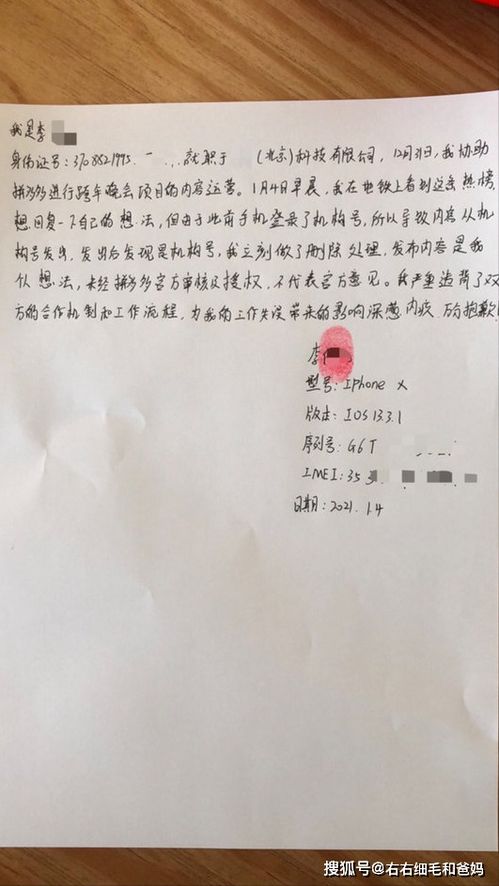 我是李
身份证号:3708821995. 就职于 (北京)科技有限公司,12月31日,我协助
拼多多进行跨年晚会项目的内容运营。1月4日早晨,我在地铁上看到这条热榜
想回复一下自己的想法,但由于此前手机登录了机构号,所以导致内容从机
构号发出,发出后发现是机构号,我立刻做了删除处理,发布内容是我
个人想法,未经拼多多官方审核及授权,不代表官方意见。我严重违背了双
方的合作机制和工作流程,为我的工作失误带来的影响深感内疚 万分抱歉!
李
型号:Iphone X
版本:IOS 13.3.1
序列号:G6T
IMEI:35
日期:2021.1.4
搜狐号@右右细毛和爸妈